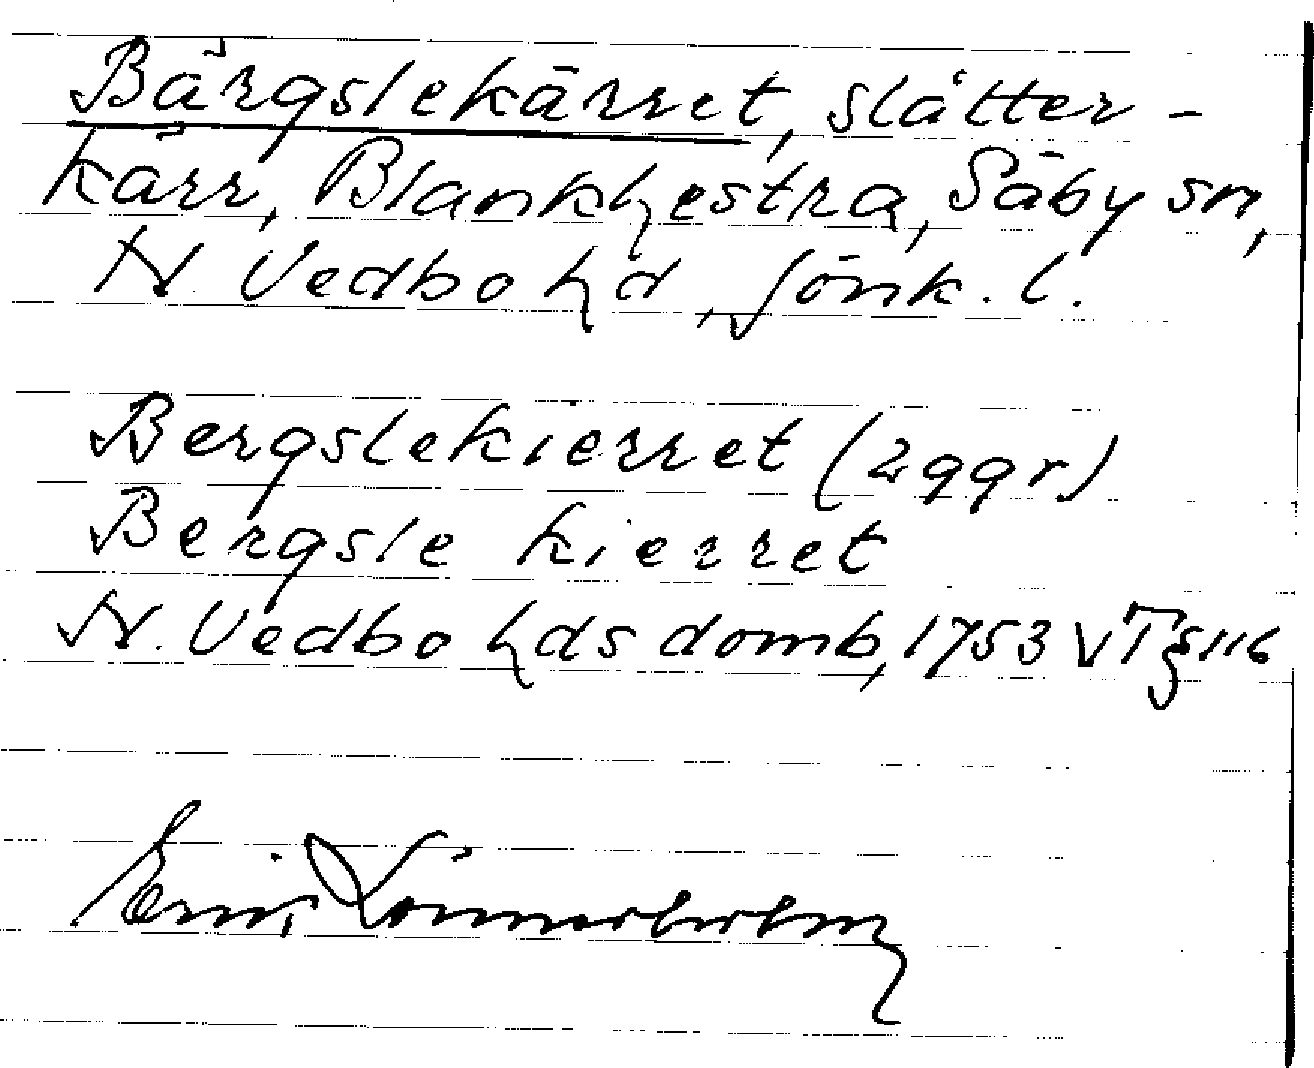 Bärgslekärret, slåtter-
kärr, Blankhestra, Säby sn,
N. Vedbo hd, Jönk. l.
Bergslekierret (2 ggr)
Bergsle kierret
N. Vedbo hds domb, 1753 VT § 116
Erik Lönnerholm